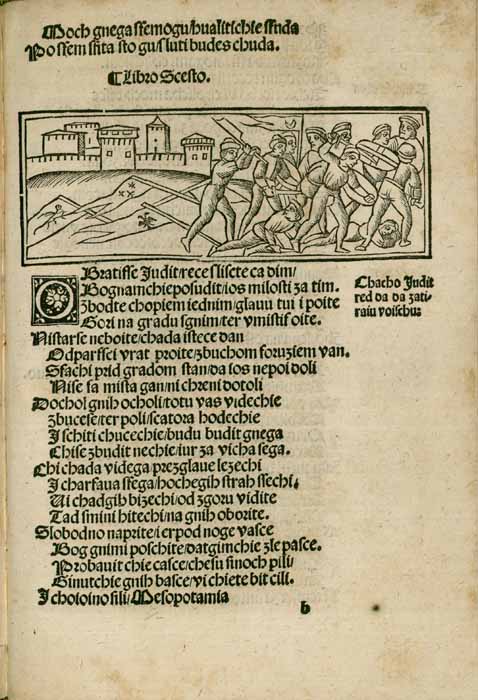 Moch gnega sfemogu/hualitichie sfuda
Po sfem sfita sto gu/sluti budes chuda.
¶Libro Scesto.
Obratisse Judit/rece sliscte ca dim/
Bog nam chie posudit/ios milosti za tim.
Zbodte chopiem iednim/glauu tui i poite
Gori na gradu sgnim/ter vmistif oite.
Chacho Judit
red da da zati-
raiu voischu:
Nistarse neboite/chada istece dan
Odparssei vrat proite/zbuchom foruziem van.
Sfachi prid gradom stan/da ios nepoi doli
Nise sa mista gan/ni chreni dotoli
Dochol gnih ocholi/totu vas videchie
Zbucese/ter poli/scatora hodechie
I schiti chucechie/budu budit gnega
Chise zbudit nechie/iur za vicha sega.
Chi chada videga prezglaue lezechi
I charfaua sfega/hochegih strah sfechi.
Ui chadgih bizechi/od zgoru vidite
Tad smini hitechi/na gnih oborite.
Slobodno naprite/i erpod noge vasce
Bog gnimi poschite/datgimchie zle pasce.
Probauit chie casce/chesu sinoch pili/
Ginutchie gnih basce/vi chiete bit cili.
I choioino sili/Mesopotamia
b